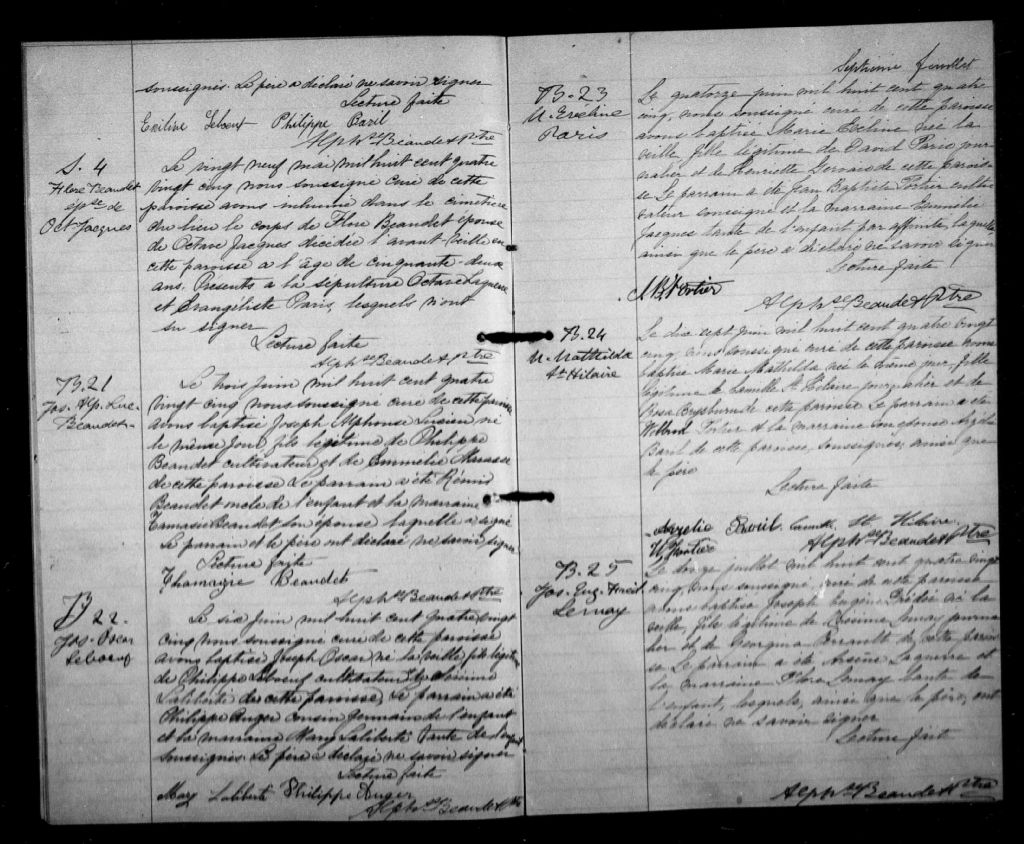 soussignés. Le père a déclaré ne savoir signer
Lecture faite
Emilive Leboeuf Philippe Baril
Alph.se Beaudet Ptre
S. 4
Flore Beaudet
épse de
Oct Jacques
Le vingt neuf mai mil huit cent quatre
vingt cinq nous soussigné curé de cette
paroisse avons inhumé dans le cimetière
du lieu le corps de Flore Beaudet épouse
de Octave Jacques décédée l'avant-veille en
cette paroisse a l'âge de cinquante-deux
ans. Présents a la sépulture Octave Laquerre
et Evangéliste Paris, lesquels n'ont
su signer
Lecture faite
Alph.se Beaudet Ptre
B. 21
Jos. Alp. Luc.
Beaudet
Le trois juin mil huit cent quatre
vingt cinq nous soussigné curé de cette paroisse
avons baptisé Joseph Alphonse Lucien né
le même jour fils légitime de Philippe
Beaudet cultivateur et de Emmélie
de cette paroisse Le parrain a été Rémi
Beaudet oncle de l'enfant et la marraine
Tamasie Beaudet son épouse laquelle a signé
Le parrain et le père ont déclaré ne savoir signer
Lecture faite
Thamazre Beaudet
Alph.se Beaudet Ptre
B 22.
Jos. Oscar
Leboeuf
Le six juin mil huit cent quatre vingt
cinq nous soussigné curé de cette paroisse
avons baptisé Joseph Oscar né la veille fils légitime
de Philippe Leboeuf cultivateur et de
Laliberté de cette paroisse, Le parrain a été
Philippe Auger cousin germain de l'enfant
et la marraine Mary Laliberté tante de l'enfant
soussignés. Le père a déclaré ne savoir signer
Lecture faite
Mary Laliberté Philippe Auger
Alph.se Beaudet Ptre
Septième feuillet
B. 23
M. Eveline
Paris
Le quatorze juin mil huit cent quatre
cinq, nous soussigné curé de cette paroisse
avons baptisé Marie Eveline née la
veille fille légitime de David Paris jour
nalier et de Henriette Gervais de cette parois
se Le parrain a été Jean Baptiste Fortier culti
vateur soussigné et la marraine
Jacques tante de l'enfant par affinité, laquelle
ainsi que le père a déclaré ne savoir signer
Lecture faite
J B Fortier
Alph.se Beaudet Ptre
B. 24
M. Mathilda
St Hilaire
Le dix sept juin mil huit cent quatre vingt
cinq, nous soussigné curé de cette paroisse avons
baptisé Marie Mathilda née le même jour fille
légitime de Camille St Hilaire journalier et de
Rosa de cette paroisse Le parrain a été
Wilbrod Fortier et la marraine son épouse
Baril de cette paroisse, soussignés, ainsi que
le père
Lecture faite
Baril Camille St Hilaire
W Fortier Alph.se Beaudet Ptre
B. 25
Jos. Eug. Frédé
Lemay
Le douze juillet mil huit cent quatre vingt
cinq, nous soussigné, curé de cette paroisse
avons baptisé Joseph Eugène Frédé né la
veille, fils légitime de Onésime Lemay journa
lier et de Georgina Perrault de cette parois
se Le parrain a été Arsène Laquerre et
la marraine Flore Lemay tante de
l'enfant, lesquels, ainsi que le père, ont
déclaré ne savoir signer
Lecture faite
Alph.se Beaudet Ptre